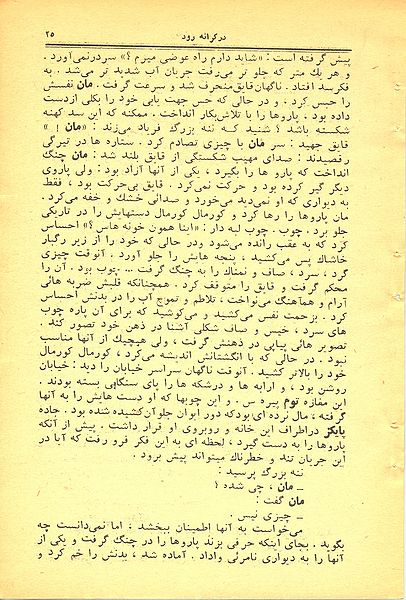 در کرانه رود
۲۵
پیش گرفته است : «شاید دارم راه عوضی میرم ؟» سردرنمی‌آورد .
و هر یك متر که جلو تر می‌رفت جریان آب شدید تر می‌شد . به
فکرسد افتاد . ناگهان‌قایق‌منحرف شد و سرعت گرفت . مان نفسش
را حبس کرد ، و در حالی که حس جهت یابی خود را بکلی ازدست
داده بود ، پاروها را با تلاش‌بکار انداخت . ممکنه که این سد کهنه
شکسته باشد ؟ شنید که ننه بزرگ فریاد می‌زند : «مان !»
قایق جهید : سر مان با چیزی تصادم کرد . ستاره ها در تیرگی
رقصیدند : صدای مهیب شکستگی از قایق بلند شد : مان چنگ
انداخت که پارو ها را بگیرد ، یکی از آنها آزاد بود : ولی پاروی
دیگر گیر کرده بود و حرکت نمی‌کرد . قایق بی‌حرکت بود ، فقط
به دیواری که او نمی‌دید می‌خورد و صدائی خشك و خفه می‌کرد .
مان پاروها را رها کرد و کورمال کورمال دستهایش را در تاریکی
جلو برد . چوب . چوب لبه دار : «اینا همون خونه هاس ؟» احساس
کرد که به عقب رانده می‌شود ودر حالی که خود را از زیر رگبار
خاشاك پس می‌کشید ، پنجه هایش را جلو آورد . آنوقت چیزی
گرد ، سرد ، صاف و نمناك را به چنگ گرفت ... چوب بود . آن را
محکم گرفت و قایق را متوقف کرد . همچنانکه قلبش ضربه هائی
آرام و هماهنگ می‌نواخت ، تلاطم و تموج آب را در بدنش احساس
کرد . بزحمت نفس می‌کشید و می‌کوشید که برای آن پاره چوب
های سرد ، خیس و صاف شکلی آشنا در ذهن خود تصور کند .
تصویر هائی پیاپی در ذهنش گرفت ، ولی هیچیك از آنها مناسب
نبود . در حالی که با انگشتانش اندیشه می‌کرد ، کورمال کورمال
خود را بالاتر کشید . آنوقت ناگهان سراسر خیابان را دید : خیابان
روشن بود ، و ارابه ها و درشکه ها را پای سنگابی بسته بودند .
این مغازه توم پیره س . و این چوبها که او دست هایش را به آنها
گرفته ، مال نرده ای بودکه دور ایوان جلوآن‌کشیده شده بود . جاده
پایکز دراطراف این خانه و روبروی او قرار داشت . پیش از آنکه
پاروها را به دست گیرد ، لحظه ای به این فکر فرو رفت که آیا در
این جریان تند و خطرناك میتواند پیش برود .
ننه بزرگ پرسید :
ـ مان ، چی شده ؟
مان گفت :
ـ چیزی نیس .
می‌خواست به آنها اطمینان ببخشد ، اما نمی‌دانست چه
بگوید . بجای اینکه حرفی بزند پاروها را در چنگ گرفت و یکی از
آنها را به دیواری نامرئی واداد . آماده شد ، بدنش را خم کرد و